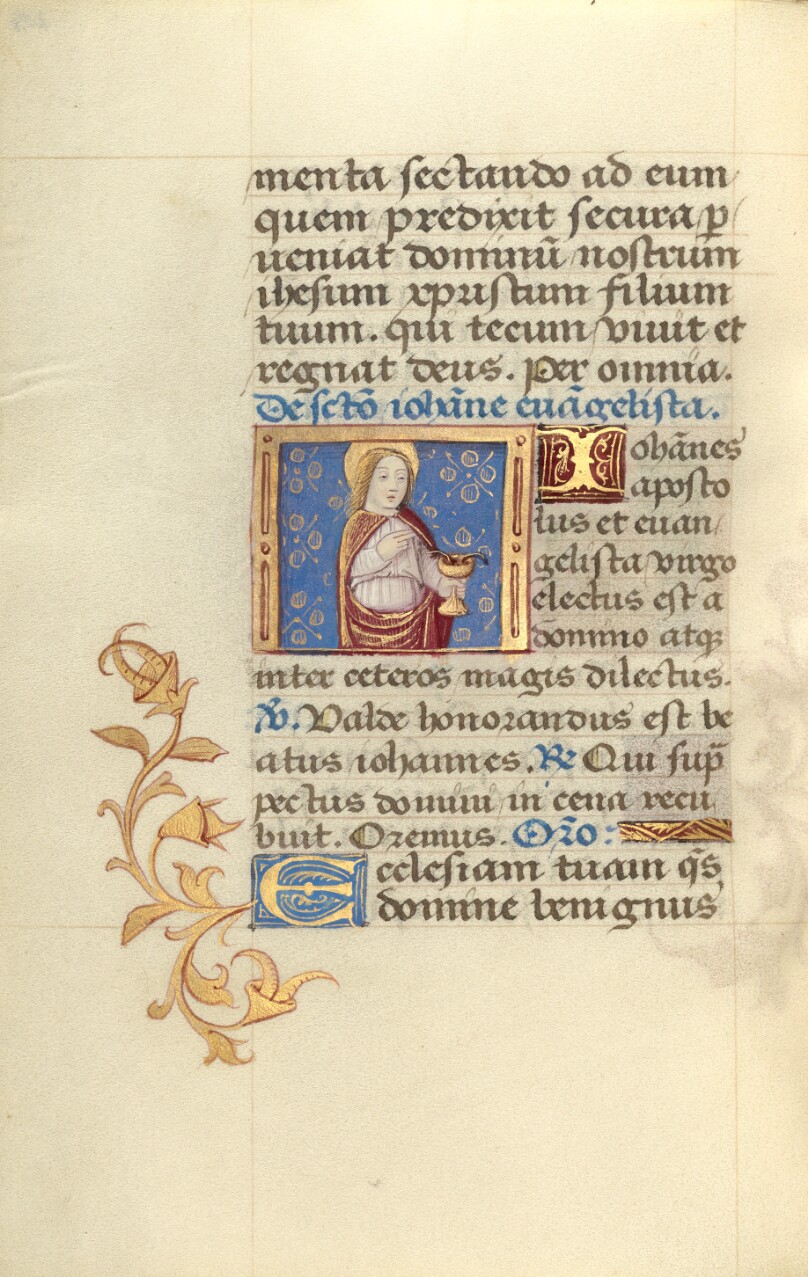 menta sectando ad eum
quem predixit secura p̲
ueniat dominū nostrum
ihesum xpristum filium
tuum. qui tecum viuit et
regnat deus. Per omnia.
De sctō iohāne euāgelista.
Iohānes
aposto
lus et euan
gelista virgo
electus est a
domino atqꝫ
inter ceteros magis dilectus.
℣. Valde honorandus est be
atus iohannes. Re Qui sup̄
pectus domini in cena recu
buit. Oremus. Orō:
Ecclesiam tuam q̄s
domine benignus